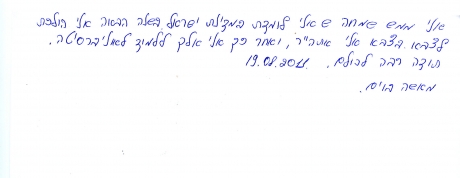 אני ממש שמחה שאני לומדת במדינת ישראל. בשנה הבאה אני הולכת
לצבא. בצבא אני אתה״ר, ואחר כך אני אלך ללמוד לאוניברסיטה.
תודה רבה לכולם. 19.08.2011
מאשה